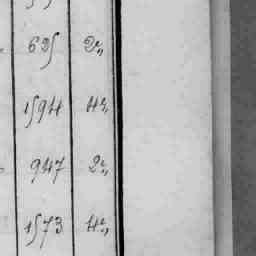 625 2„
1594 4„
947 2„
1573 4„